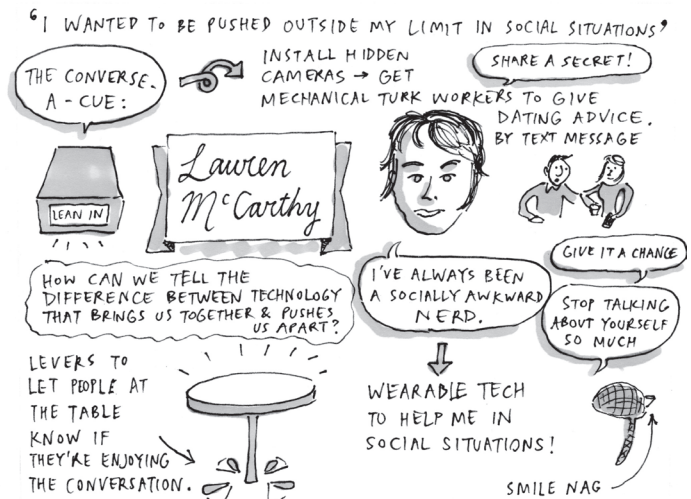 'I WANTED TO BE PUSHED OUTSIDE MY LIMIT IN SOCIAL SITUATIONS'
THE CONVERSE-
A-CUE:
INSTALL HIDDEN
CAMERAS → GET
MECHANICAL TURK WORKERS TO GIVE
DATING ADVICE.
BY TEXT MESSAGE
SHARE A SECRET!
LEAN IN
Lauren
McCarthy
GIVE IT A CHANCE
HOW CAN WE TELL THE
DIFFERENCE BETWEEN TECHNOLOGY
THAT BRINGS US TOGETHER & PUSHES
US APART?
I'VE ALWAYS BEEN
A SOCIALLY AWKWARD
NERD.
STOP TALKING
ABOUT YOURSELF
SO MUCH
LEVERS TO
LET PEOPLE AT
THE TABLE
KNOW IF
THEY'RE ENJOYING
THE CONVERSATION.
WEARABLE TECH
TO HELP ME IN
SOCIAL SITUATIONS!
SMILE NAG